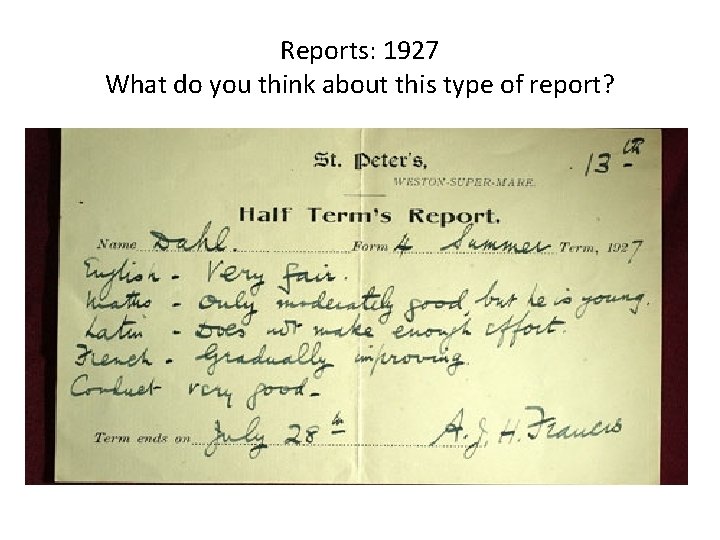 Reports: 1927
What do you think about this type of report?
St. Peter's,
13th
WESTON-SUPER-MARE.
Half Term's Report.
Name Dahl. Form 4 Summer Term, 1927
English - Very fair.
Maths - Only moderately good, but he is young.
Latin - Does not make enough effort.
French - Gradually improving.
Conduct very good -
Term ends on July 28th A.J.H. Francis